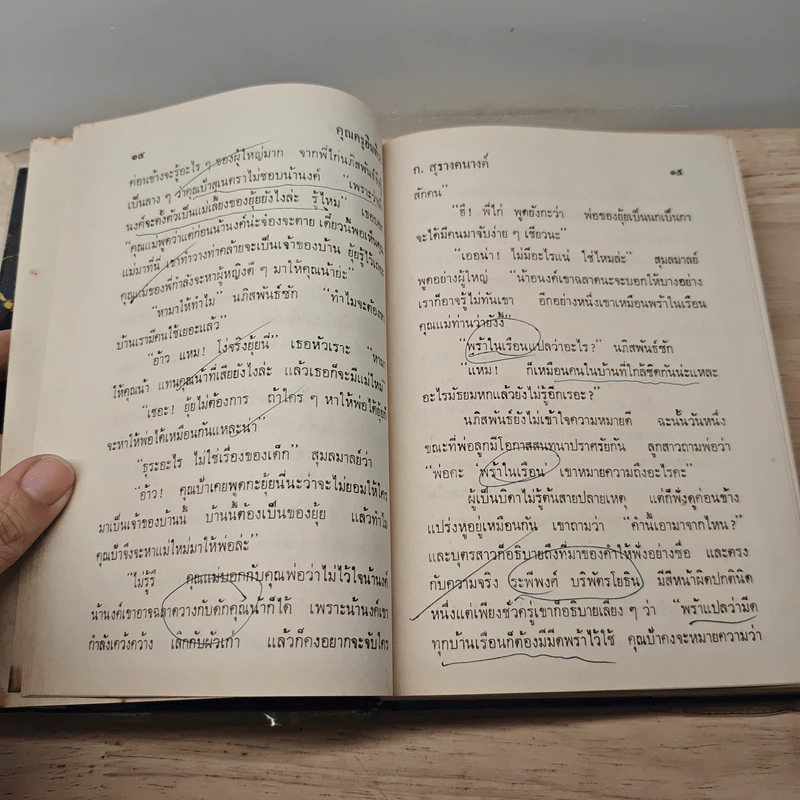 ๑๔
คุณครูอินทิรา
ค่อนข้างจะรู้อะไร ๆ ของผู้ใหญ่มาก จากพี่ไก่นภิสพันธ์จึง
เป็นลาง ๆ ว่าคุณป้าสุเนตราไม่ชอบน้านงค์ "เพราะว่าน้า
นงค์จะตั้งตัวเป็นแม่เลี้ยงของยุ้ยยังไงล่ะ รู้ไหม"
"คุณแม่พูดว่าแต่ก่อนน้านงค์น่ะจ๋องจะตาย เดี๋ยวนี้พอเห็นคุณ
แม่มาที่นี่ เขาทำวางท่าคล้ายจะเป็นเจ้าของบ้าน ยุ้ยรู้ไว้เถอะ
คุณแม่ของพี่กำลังจะหาผู้หญิงดี ๆ มาให้คุณน้าย่ะ"
"หามาให้ทำไม" นภิสพันธ์ซัก "ทำไมจะต้องหา
บ้านเรามีคนใช้เยอะแล้ว"
"อ้าว แหม! โง่จริงยุ้ยนี่" เธอหัวเราะ "หามา
ให้คุณน้า แทนคุณน้าที่เสียยังไงล่ะ แล้วเธอก็จะมีแม่ใหม่"
"เชอะ! ยุ้ยไม่ต้องการ ถ้าใคร ๆ หาให้พ่อได้ยุ้ยก็
จะหาให้พ่อได้เหมือนกันแหละน่า"
"ธุระอะไร ไม่ใช่เรื่องของเด็ก" สุมลมาลย์ว่า
"อ้าว! คุณป้าเคยพูดกะยุ้ยนี่นะว่าจะไม่ยอมให้ใคร
มาเป็นเจ้าของบ้านนี้ บ้านนี้ต้องเป็นของยุ้ย แล้วทำไม
คุณป้าจึงจะหาแม่ใหม่มาให้พ่อล่ะ"
"ไม่รู้ซี คุณแม่บอกกับคุณพ่อว่าไม่ไว้ใจน้านงค์
น้านงค์เขาอาจฉลาดวางกับดักคุณน้าก็ได้ เพราะน้านงค์เขา
กำลังเคว้งคว้าง เลิกกับผัวเก่า แล้วก็คงอยากจะจับใคร
ก. สุรางคนางค์
๑๕
สักคน"
"ฮึ! พี่ไก่ พูดยังกะว่า พ่อของยุ้ยเป็นนกเป็นกา
จะได้มีคนมาจับง่าย ๆ เชียวนะ"
"เออน่า! ไม่มีอะไรแน่ ใช่ไหมล่ะ" สุมลมาลย์
พูดอย่างผู้ใหญ่ "น้าอนงค์เขาฉลาดนะจะบอกให้บางอย่าง
เราก็อาจรู้ไม่ทันเขา อีกอย่างหนึ่งเขาเหมือนพร้าในเรือน
คุณแม่ท่านว่ายังงี้"
"พร้าในเรือนแปลว่าอะไร?" นภิสพันธ์ซัก
"แหม! ก็เหมือนคนในบ้านที่ใกล้ชิดกันน่ะแหละ
อะไรมัธยมหกแล้วยังไม่รู้อีกเรอะ?"
นภิสพันธ์ยังไม่เข้าใจความหมายดี ฉะนั้นวันหนึ่ง
ขณะที่พ่อลูกมีโอกาสสนทนาปราศรัยกัน ลูกสาวถามพ่อว่า
"พ่อคะ 'พร้าในเรือน' เขาหมายความถึงอะไรคะ"
ผู้เป็นบิดาไม่รู้ต้นสายปลายเหตุ แต่ก็ฟังดูค่อนข้าง
แปร่งหูอยู่เหมือนกัน เขาถามว่า "คำนี้เอามาจากไหน?"
และบุตรสาวก็อธิบายถึงที่มาของคำให้ฟังอย่างซื่อ และตรง
กับความจริง ระพีพงศ์ บริพัตรโยธิน มีสีหน้าผิดปกตินิด
หนึ่งแต่เพียงชั่วครู่เขาก็อธิบายเลี่ยง ๆ ว่า "พร้าแปลว่ามีด
ทุกบ้านเรือนก็ต้องมีมีดพร้าไว้ใช้ คุณป้าคงจะหมายความว่า